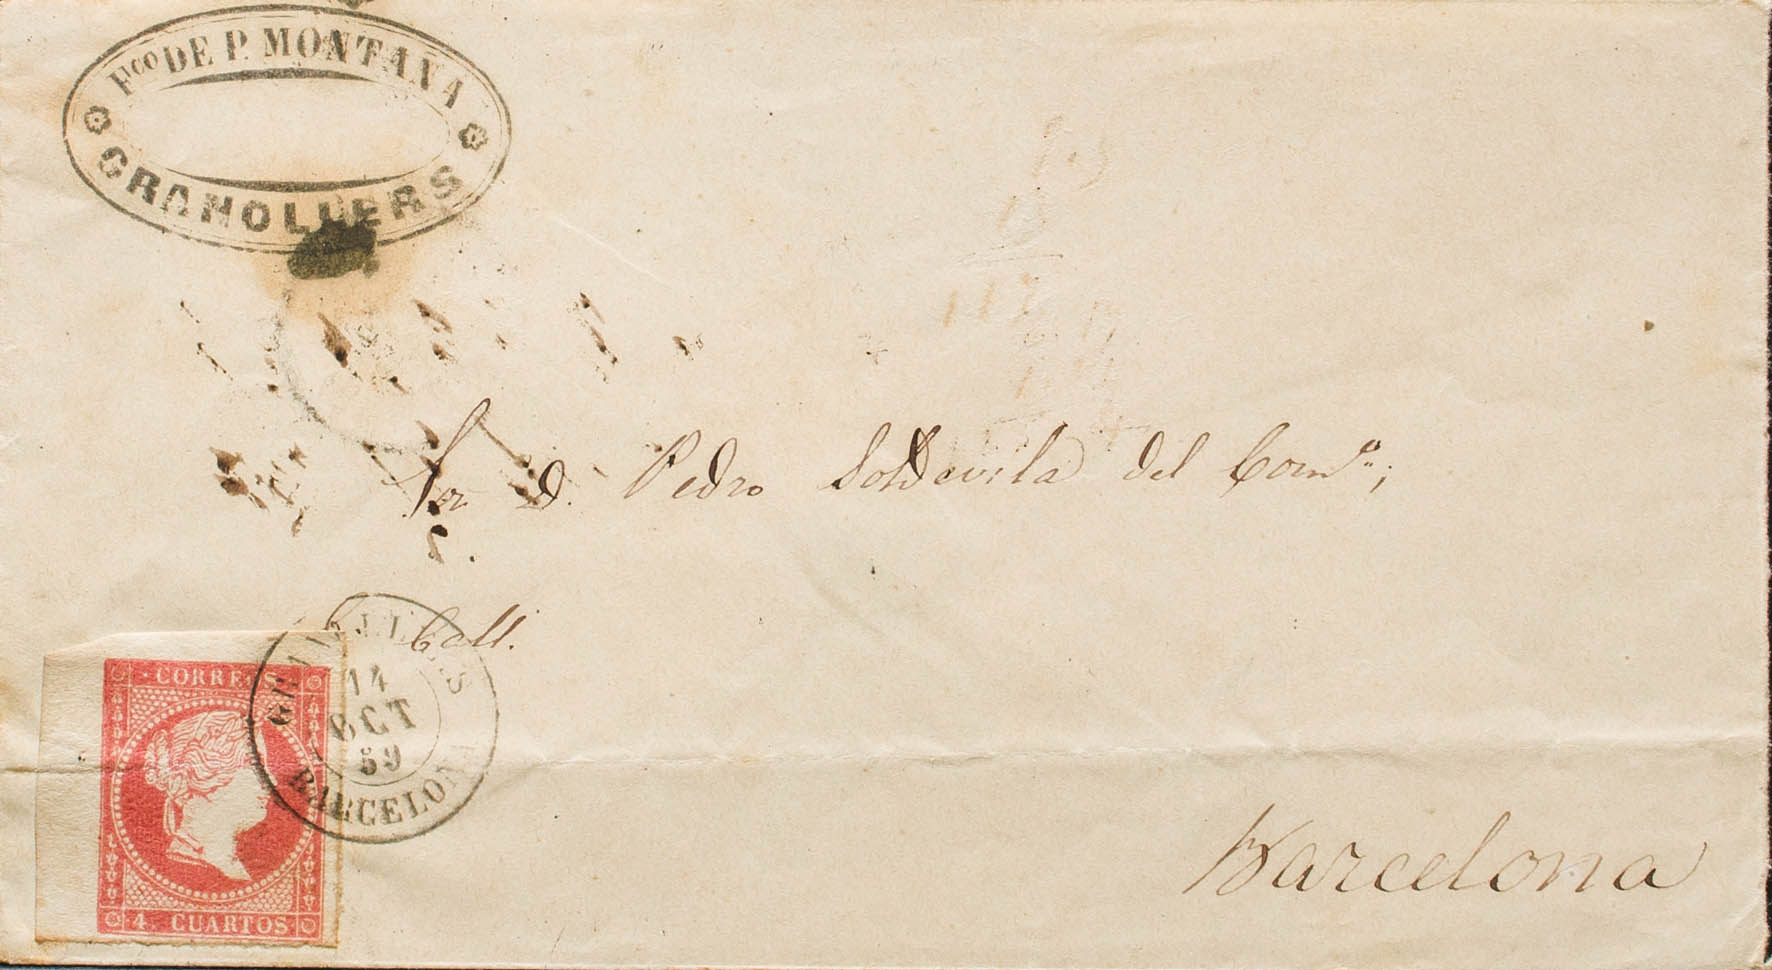 Fco DE P. MONTANA
GRANOLLERS
Sor D. Pedro Soldevila del Comº;
Call.
GRANOLLERS
14
OCT
59
BARCELONA
CORREOS
4. CUARTOS
Barcelona